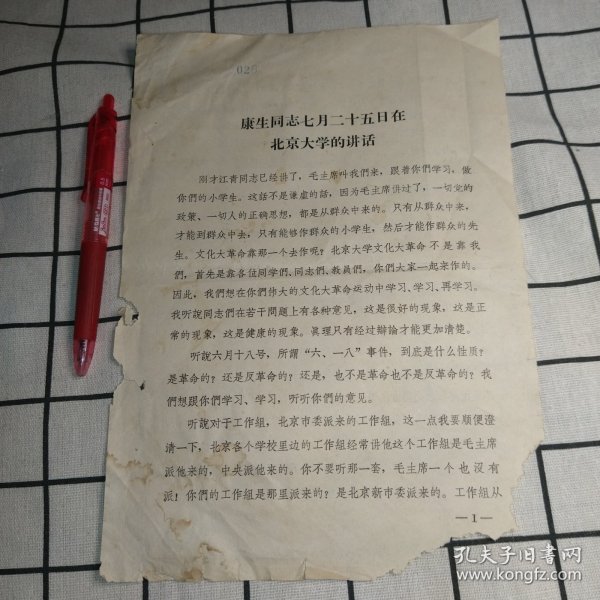 025
康生同志七月二十五日在
北京大学的讲话
刚才江青同志已经讲了,毛主席叫我們来,跟着你們学习,做
你們的小学生。这話不是谦虚的話,因为毛主席讲过了,一切党的
政策、一切人的正确思想,都是从群众中来的。只有从群众中来,
才能到群众中去,只有能够作群众的小学生,然后才能作群众的先
生。文化大革命靠那一个去作呢?北京大学文化大革命不是靠我
們,首先是靠各位同学們、同志們、教員們,你們大家一起来作的。
因此,我們想在你們伟大的文化大革命运动中学习、学习、再学习。
我听說同志們在若干問題上有各种意见,这是很好的现象,这是正
常的现象,这是健康的现象。眞理只有经过辯論才能更加清楚。
听說六月十八号,所謂“六、一八”事件,到底是什么性质?
是革命的?还是反革命的?还是,也不是革命也不是反革命的?我
們想跟你們学习、学习,听听你們的意见。
听說对于工作組,北京市委派来的工作組,这一点我要順便澄
清一下,北京各个学校里边的工作組经常讲他这个工作組是毛主席
派他来的,中央派他来的。你不要听那一套,毛主席一个也沒有
派!你們的工作組是那里派来的?是北京新市委派来的。工作組从
—1—
孔夫子旧书网
www.kongfz.com